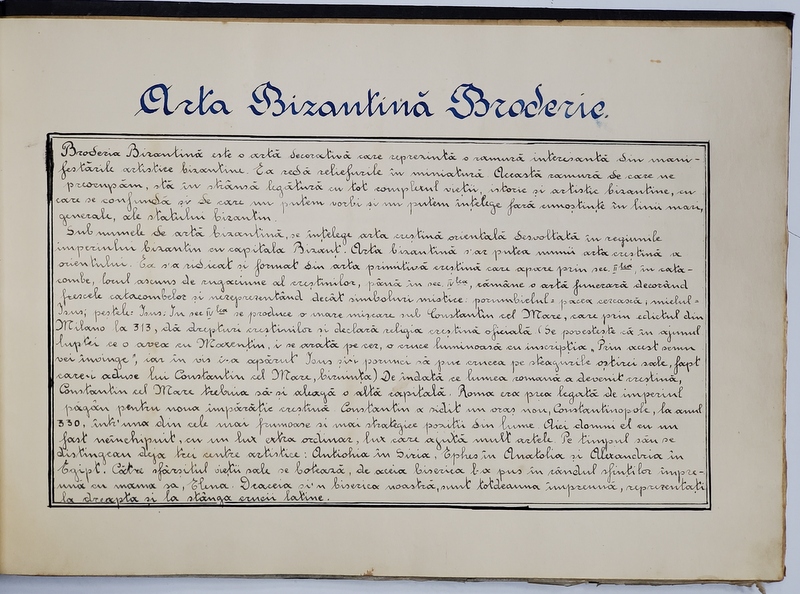 Arta Bizantină Broderie.
Broderia Bizantină este o artă decorativă care reprezintă o ramură interesantă din mani-
festările artistice bizantine. Ea redă reliefurile în miniatură Această ramură de care ne
preocupăm, stă în strânsă legătură cu tot complexul vieții, istoric și artistic bizantine, cu
care se confundă și de care nu putem vorbi și nu putem înțelege fară cunoștințe în linii mari,
generale, ale statului bizantin.
Sub numele de artă bizantină, se înțelege arta creștină orientală desvoltată în regiunile
imperiului bizantin cu capitala Bizanț. Arta bizantină s'ar putea numi arta creștină a
orientului. Ea s'a ridicat și format din arta primitivă creștină care apare prin sec. II lea, în cata-
combe, locul ascuns de rugaciune al creștinilor, până în sec. IV lea, rămâne o artă funerară decorând
frescele catacombelor și nereprezentând decât simboluri mistice: porumbielul = pacea cerească, mielul =
Isus; pestele= Isus; În sec IV lea se produce o mare mișcare sub Constantin cel Mare, care prin edictul din
Milano la 313, dă drepturi creștinilor si declară religia creștină oficială (Se povesteste că în ajunul
luptei ce o avea cu Maxentin, i se arată pe cer, o cruce luminoasă cu inscripția „Prin acest semn
vei învinge", iar în vis i-a apărut Isus și-i porunci să pue crucea pe steagurile oștirei sale, fapt
care-i aduse lui Constantin cel Mare, biruința) De îndată ce lumea romană a devenit creștină,
Constantin cel Mare trebuia să-si aleagă o altă capitală. Roma era prea legată de imperiul
păgân pentru noua împărăție creștină Constantin a zidit un oraș nou, Constantinopole, la anul
330, într'una din cele mai frumoase si mai strategice poziții din lume Aici domni el cu un
fast neînchipuit, cu un lux extra ordinar, lux care ajută mult artele Pe timpul său se
distingeau deja trei centre artistice: Antiohia în Siria, Ephes în Anatolia si Alexandria în
Egipt. Către sfârsitul vieții sale se botează, de aceia biserica l-a pus în rândul sfinților împre-
ună cu mama sa, Elena. Deaceia si'n biserica noastră, sunt totdeauna împreună, reprezentați
la dreapta și la stânga crucii latine.